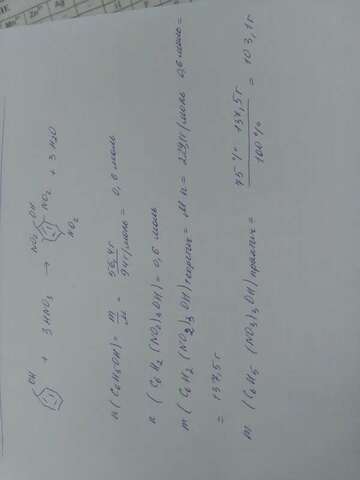 OH + 3 HNO3 → NO2 OH NO2 NO2 + 3 H2O
n (C6H5OH) = m/M = 56,4г/94г/моль = 0,6 моль
n (C6H2 (NO2)3 OH) = 0,6 моль
m (C6H2 (NO2)3 OH) теоретич = M n = 229г/моль 0,6 моль =
= 137,5г
m (C6H5 (NO3)3 OH) практич = 75% 137,5г / 100% = 103,1г